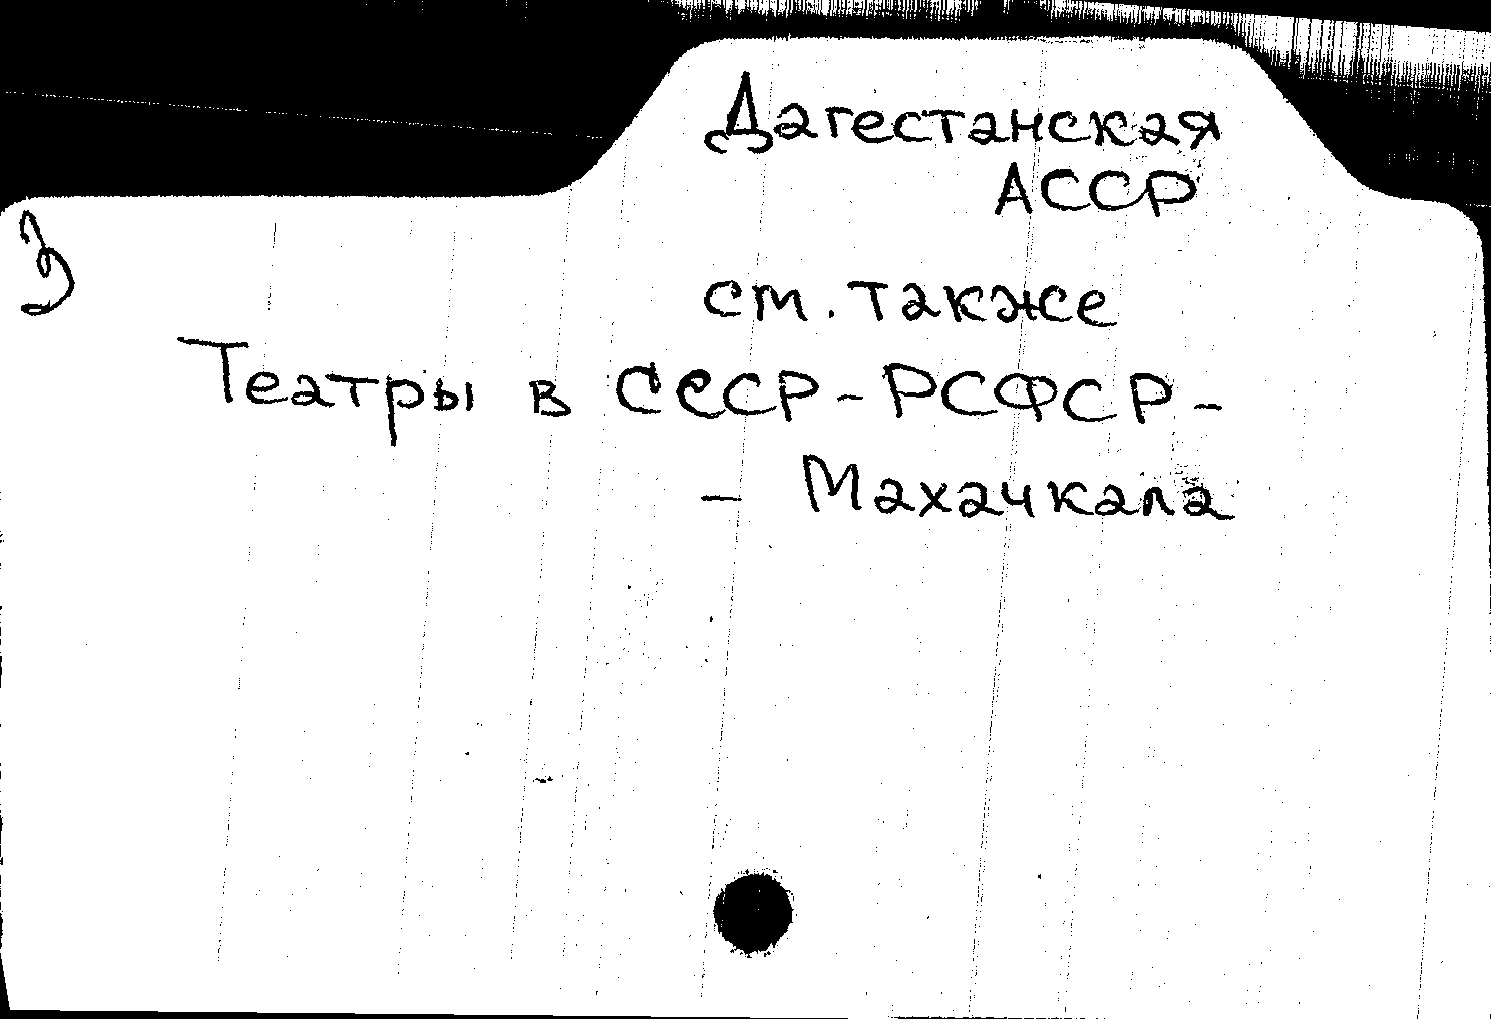 Дагестанская
АССР
см. также
Театры в СССР - РСФСР -
- Махачкала